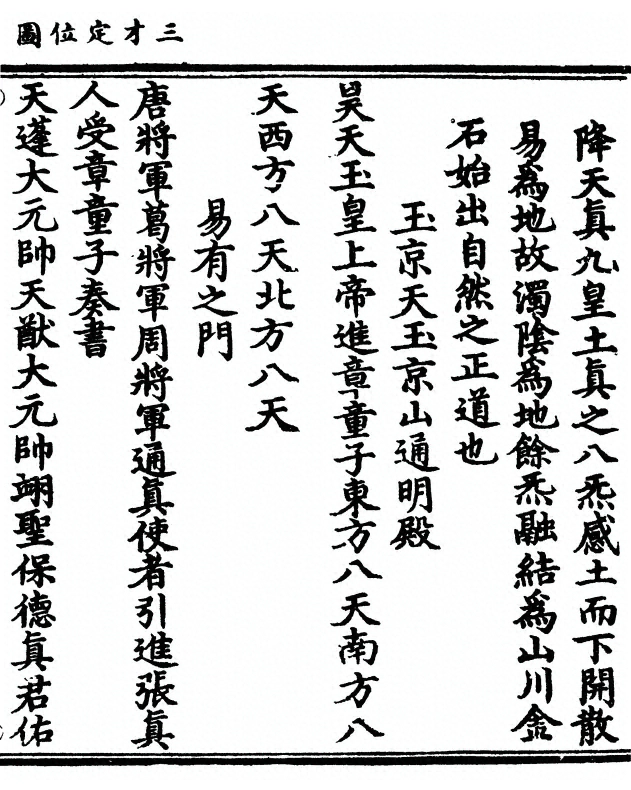 三才定位圖
降天眞九皇土眞之八炁感土而下開散
易爲地故濁陰爲地餘炁融結爲山川金
石始出自然之正道也
玉京天玉京山通明殿
昊天玉皇上帝進章童子東方八天南方八
天西方八天北方八天
易有之門
唐將軍葛將軍周將軍通眞使者引進張眞
人受章童子奏書
天蓬大元帥天猷大元帥翊聖保德眞君佑